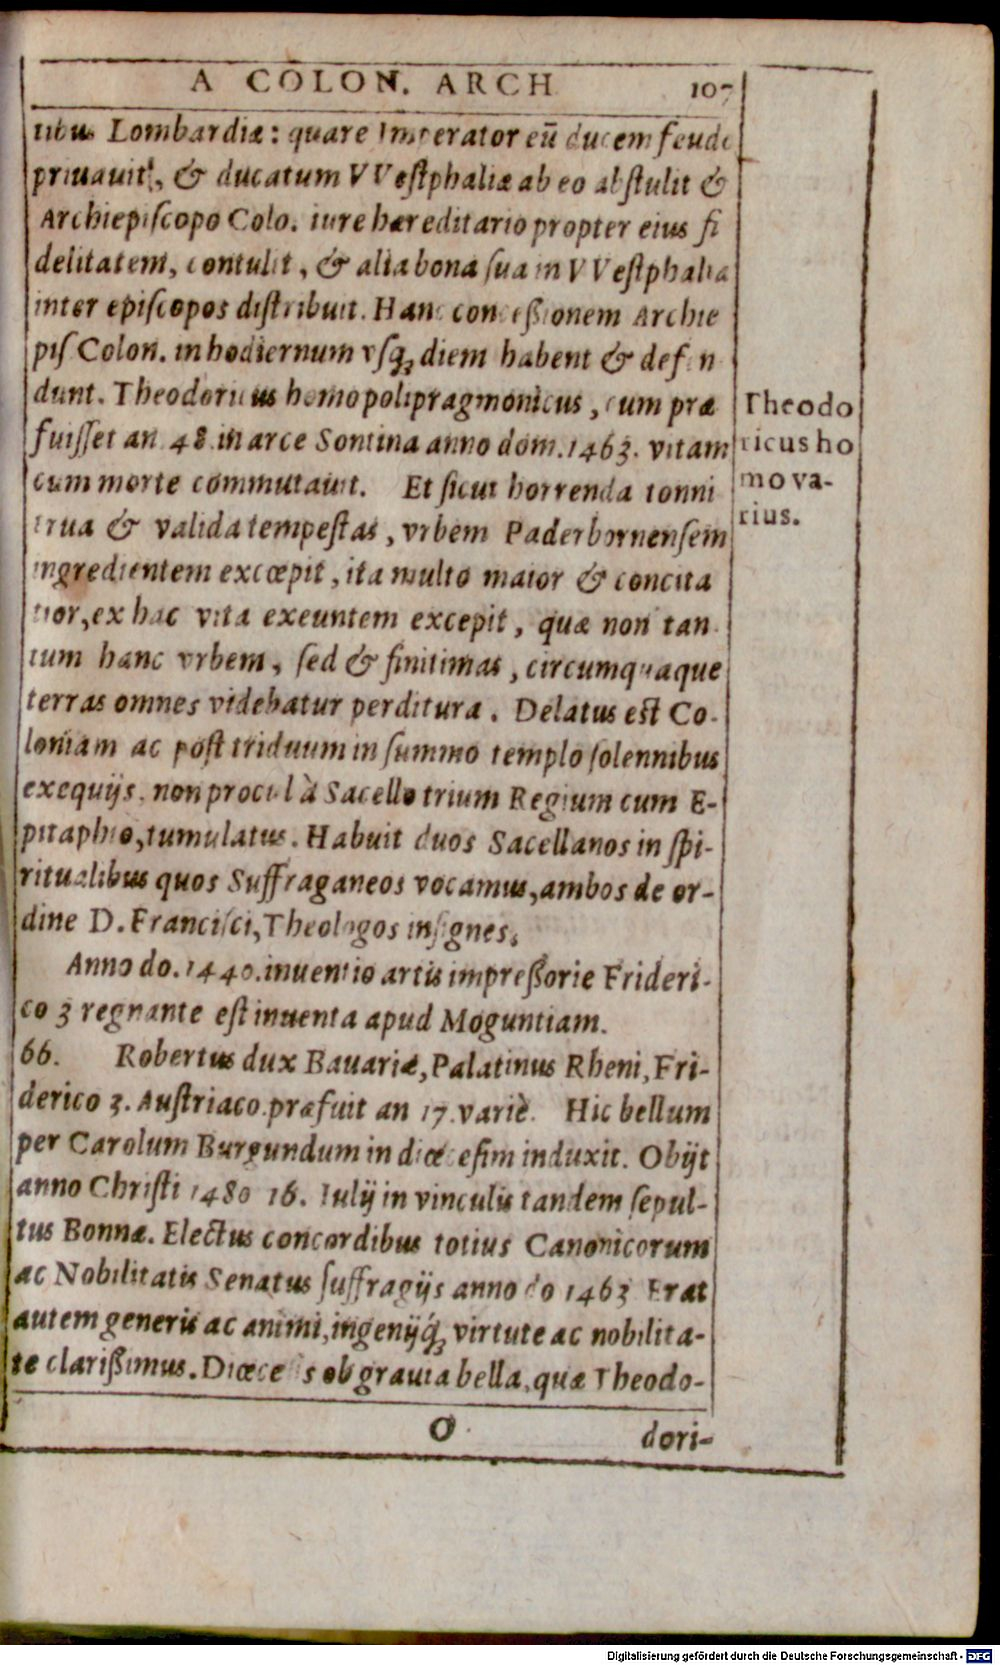 A COLON. ARCH 107
tibus Lombardiæ: quare Imperator eũ ducem feudo
priuauit, & ducatum VVestphaliæ ab eo abstulit &
Archiepiscopo Colo. iure hæreditario propter eius fi
delitatem, contulit, & alia bona sua in VVestphalia
inter episcopos distribuit. Hanc concessionem Archie
pis Colon. in hodiernum vsq; diem habent & defen
dunt. Theodoricus homo polipragmonicus, cum præ
fuisset an 48. in arce Sontina anno dom. 1463. vitam
cum morte commutauit. Et sicut horrenda tonni
trua & valida tempestas, vrbem Paderbornensem
ingredientem excœpit, ita multo maior & concita
tior, ex hac vita exeuntem excepit, quæ non tan
tum hanc vrbem, sed & finitimas, circumquaque
terras omnes videbatur perditura. Delatus est Co-
loniam ac post triduum in summo templo solennibus
exequijs, non procul à Sacello trium Regium cum E-
pitaphio, tumulatus. Habuit duos Sacellanos in spi-
ritualibus quos Suffraganeos vocamus, ambos de or-
dine D. Francisci, Theologos insignes.
Anno do. 1440. inuentio artis impressorie Frideri-
co 3 regnante est inuenta apud Moguntiam.
66. Robertus dux Bauariæ, Palatinus Rheni, Fri-
derico 3. Austriaco præfuit an 17. variè. Hic bellum
per Carolum Burgundum in diœcesim induxit. Obijt
anno Christi 1480 16. Iulij in vinculis tandem sepul-
tus Bonnæ. Electus concordibus totius Canonicorum
ac Nobilitatis Senatus suffragijs anno do 1463 Erat
autem generis ac animi, ingenijq́; virtute ac nobilita-
te clarissimus. Diœcesis ob grauia bella, quæ Theodo-
O dori-
Theodo
ricus ho
mo va-
rius.
Digitalisierung gefördert durch die Deutsche Forschungsgemeinschaft - DFG